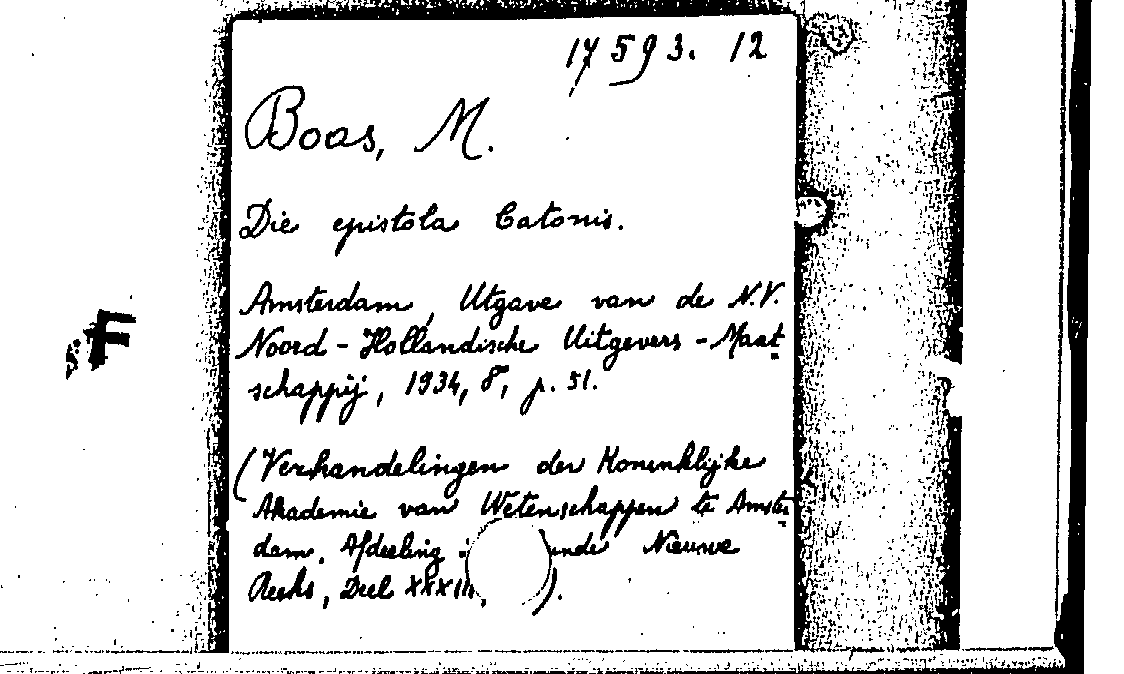 17593. 12
Boas, M.
Die epistola Catonis.
Amsterdam, Utgave van de N.V.
Noord-Hollandische Uitgevers-Maat
schappij, 1934, 8°, p. 51.
(Verhandelingen der Koninklijke
Akademie van Wetenschappen te Amster
dam. Afdeeling Nieuwe
Reeks, Deel XXXIII, ).
F